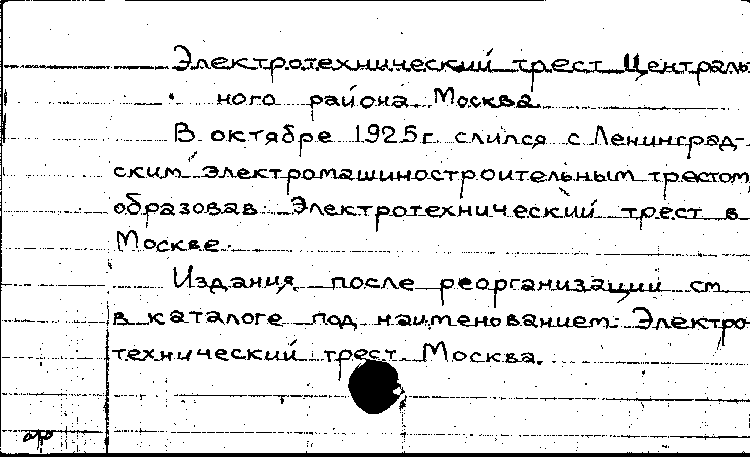 Электротехнический трест Централь
ного района. Москва.
В октябре 1925г. слился с Ленинград-
ским электромашиностроительным трестом,
образовав Электротехнический трест в
Москве.
Издания после реорганизации см.
в каталоге под наименованием: Электро-
технический трест. Москва.